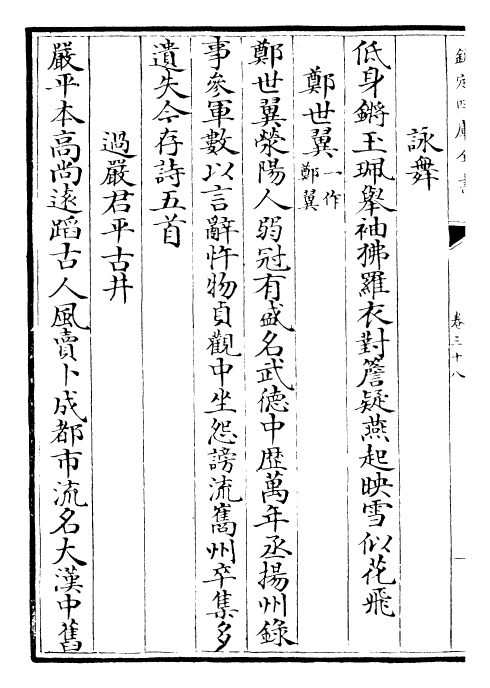 欽定四庫全書
卷三十八
詠舞
低身鏘玉珮舉袖拂羅衣對簷疑燕起映雪似花飛
鄭世翼一作鄭翼
鄭世翼滎陽人弱冠有盛名武德中歴萬年丞揚州錄
事參軍數以言辭忤物貞觀中坐怨謗流嶲州卒集多
遺失今存詩五首
過嚴君平古井
嚴平本高尚遠蹈古人風賣卜成都市流名大漢中舊